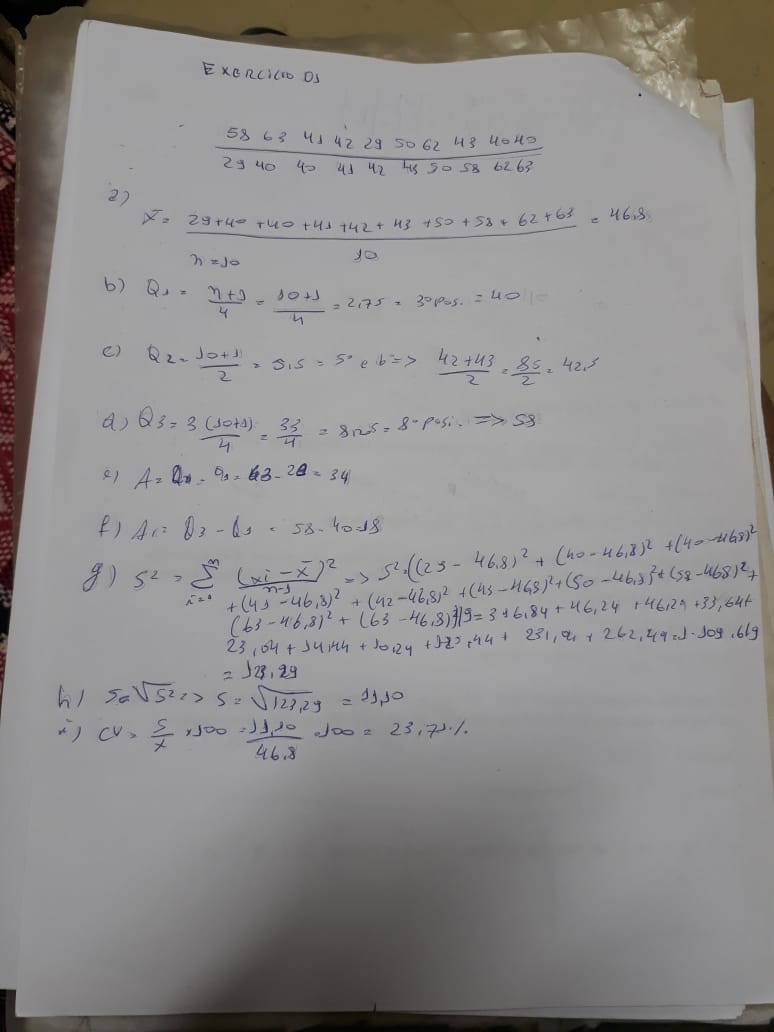 EXERCICIO 01
58 63 41 42 29 50 62 43 40 40
29 40 40 41 42 43 50 58 62 63
a)
x̄ = 29+40+40+41+42+43+50+58+62+63 / 10 = 46,8
n = 10
b) Q1 = n+1 / 4 = 10+1 / 4 = 2,75 = 3º pos. = 40
c) Q2 = 10+1 / 2 = 5,5 = 5º e 6º => 42+43 / 2 = 85 / 2 = 42,5
d) Q3 = 3 (10+1) / 4 = 33 / 4 = 8,25 = 8º posi. => 58
e) A = 63-29 = 34
f) Q3 - Q1 = 58-40=18
g) S² = Σ (xi - x̄)² / n-1 => S² = ((29 - 46,8)² + (40-46,8)² + (40-46,8)²
+ (41-46,8)² + (42-46,8)² + (43-46,8)² + (50-46,8)² + (58-46,8)² +
(63-46,8)² + (63-46,8)²)/9 = 316,84 + 46,24 + 46,24 + 33,64 +
23,04 + 14,44 + 10,24 + 125,44 + 231,04 + 262,44 = 1.109,6/9
= 123,29
h) S = √S² => S = √123,29 = 11,10
i) CV = S / x̄ × 100 = 11,10 / 46,8 · 100 = 23,71%